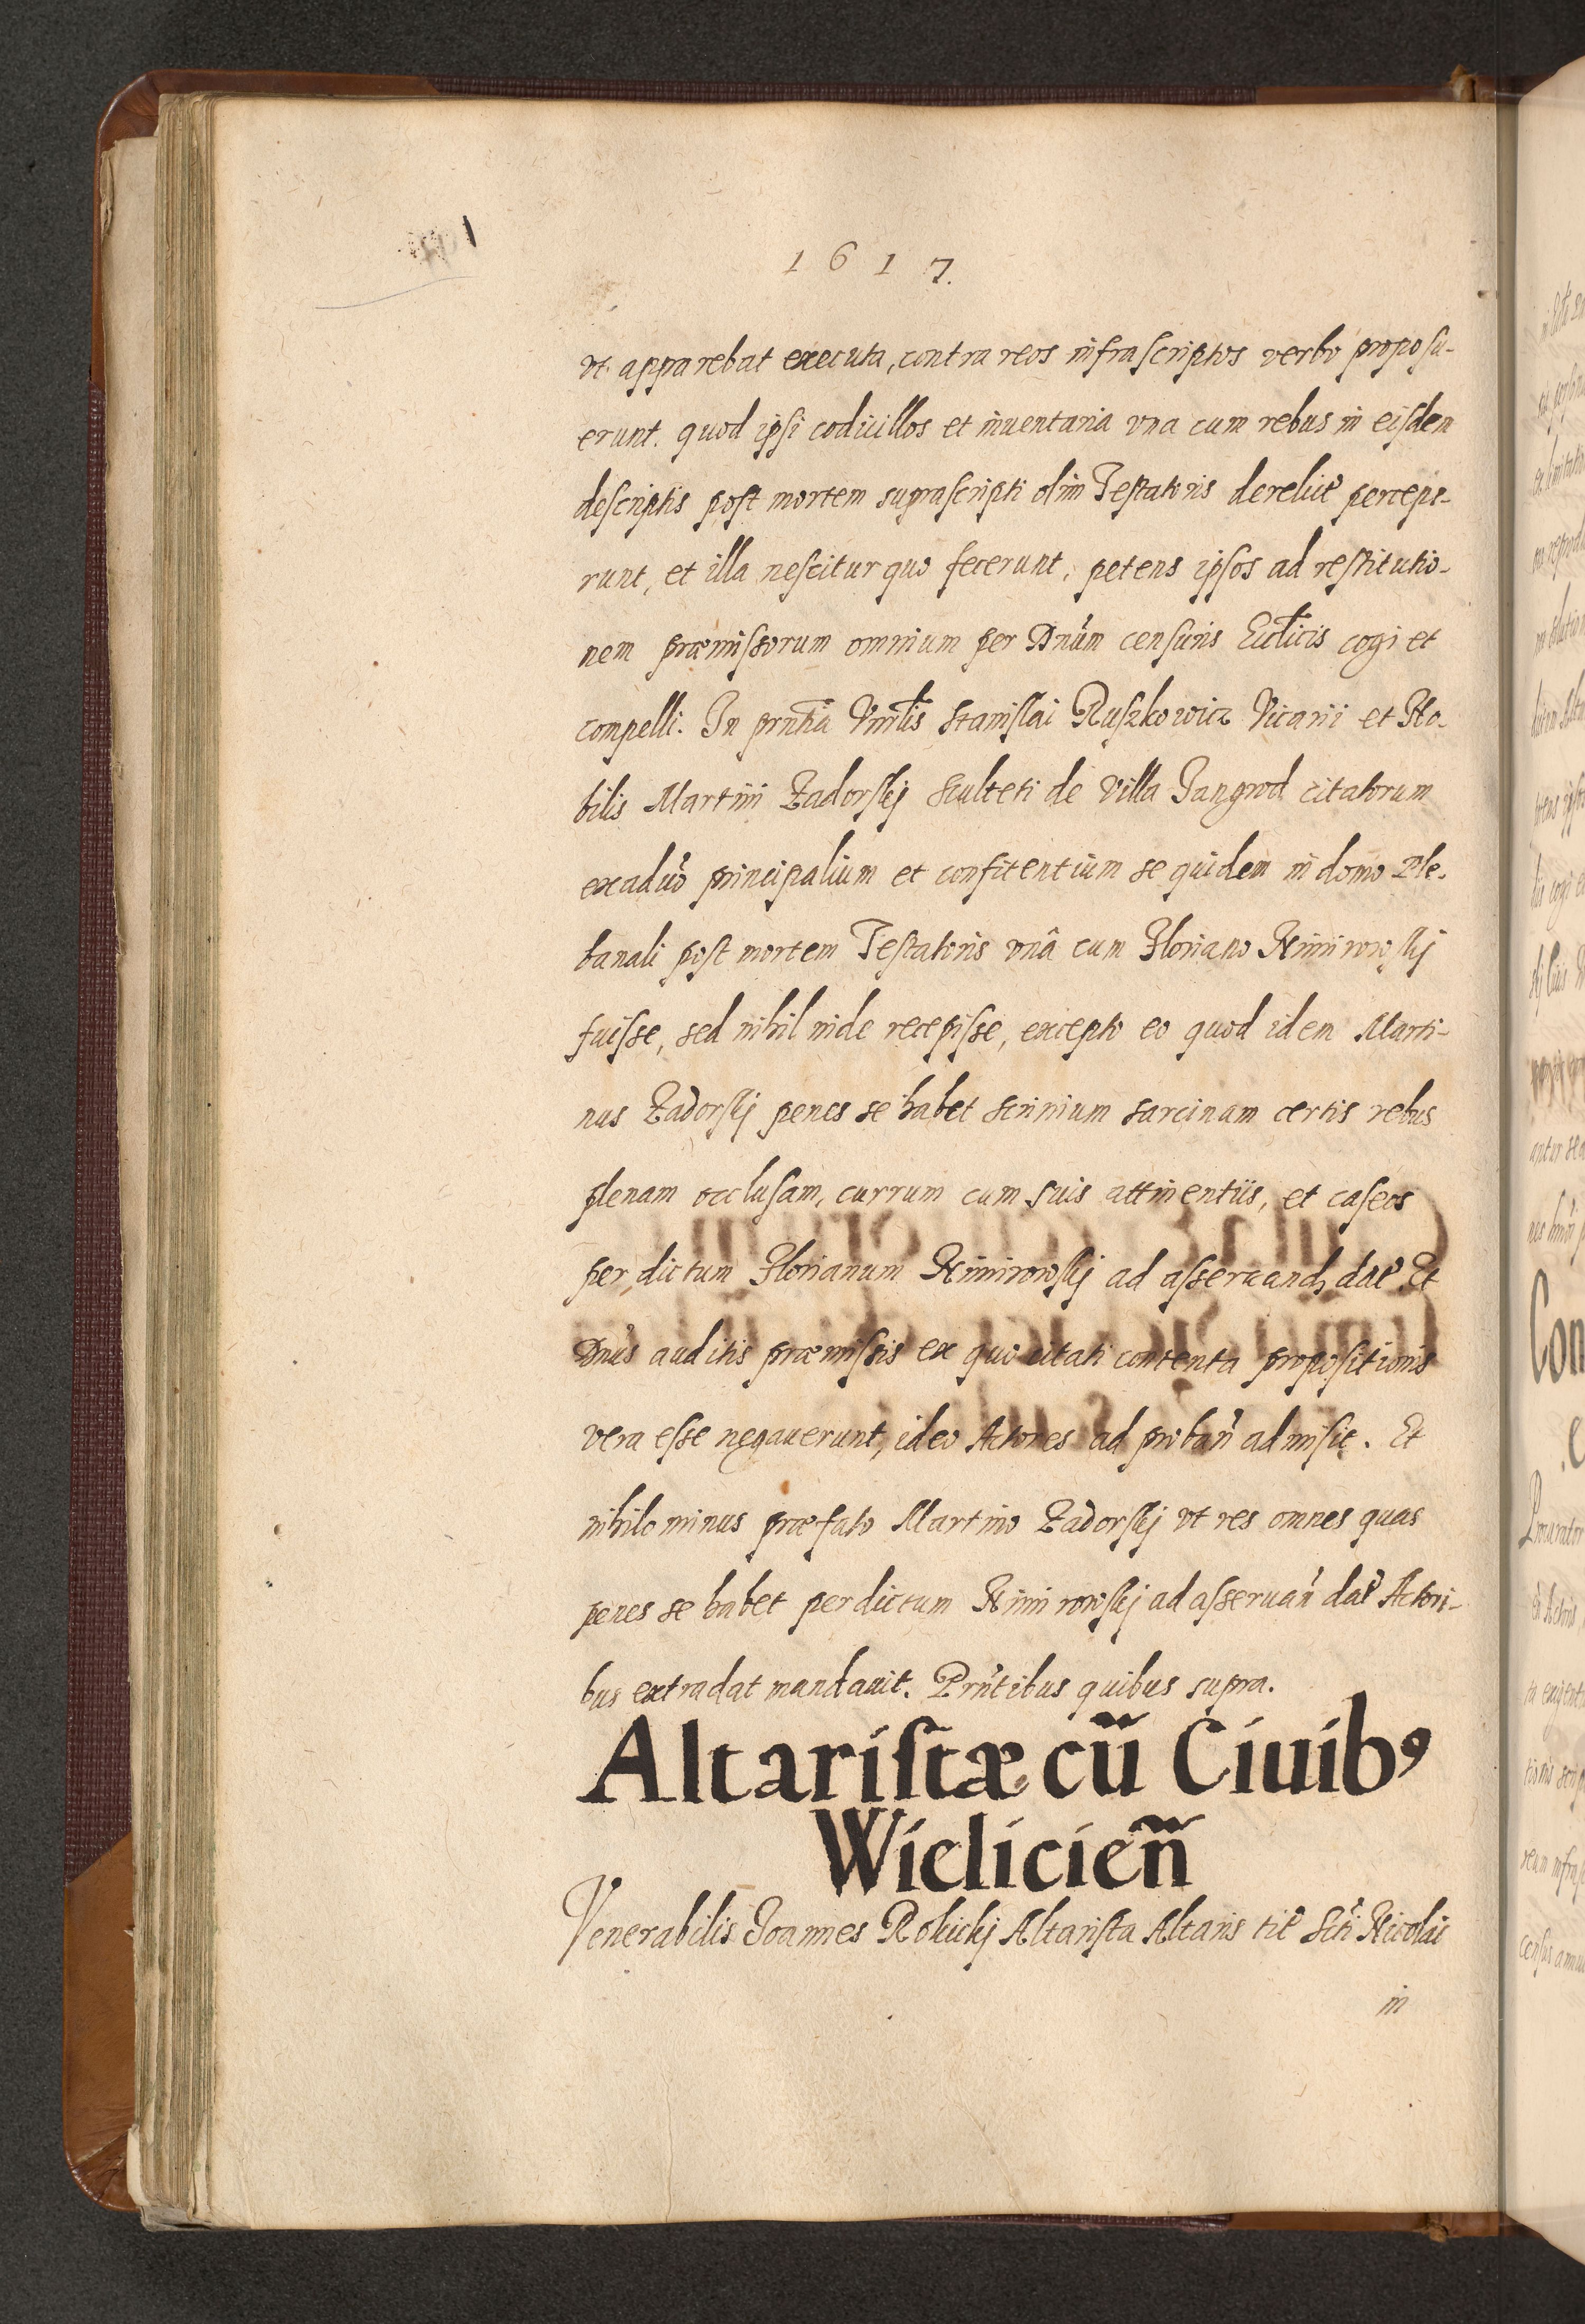 1617.
vt apparebat executa, contra reos infrascriptos verbo proposu-
erunt. quod ipsi codicillos et inuentaria vna cum rebus in eisdem
descriptis post mortem suprascripti olim Testatoris derelict percepe-
runt, et illa nescitur quo fecerunt, petens ipsos ad restitutio-
nem præmissorum omnium per Dnum censuris Ecclicis cogi et
compelli. In prntia Vnrlis Stanislai Ruszkowicz Vicarii et No-
bilis Martini Zadorskj Sculteti de Villa Jangrod citatorum
ex aduo principalium et confitentium se quidem in domo Ple-
banali post mortem Testatoris vnâ cum Floriano Nimirowskj
fuisse, sed nihil inde recepisse, excepto eo quod idem Marti-
nus Zadorskj penes se habet scrinium sarcinam certis rebus
plenam occlusam, currum cum suis attinentiis, et caseos
per dictum Florianum Nimirowskj ad asseruand dat Et
Dnus auditis præmissis ex quo citati contenta propositionis
vera esse negauerunt, ideo Actores ad proban admisit. Et
nihilominus præfato Martino Zadorskj vt res omnes quas
penes se habet per dictum Nimirowskj ad asseruan dat Actori-
bus extradat mandauit. Prntibus quibus supra.
Altaristæ cu̅ Ciuibꝰ
Wielicien̅
Venerabilis Joannes Rokickj Altarista Altaris tit Scti Nicolai
in